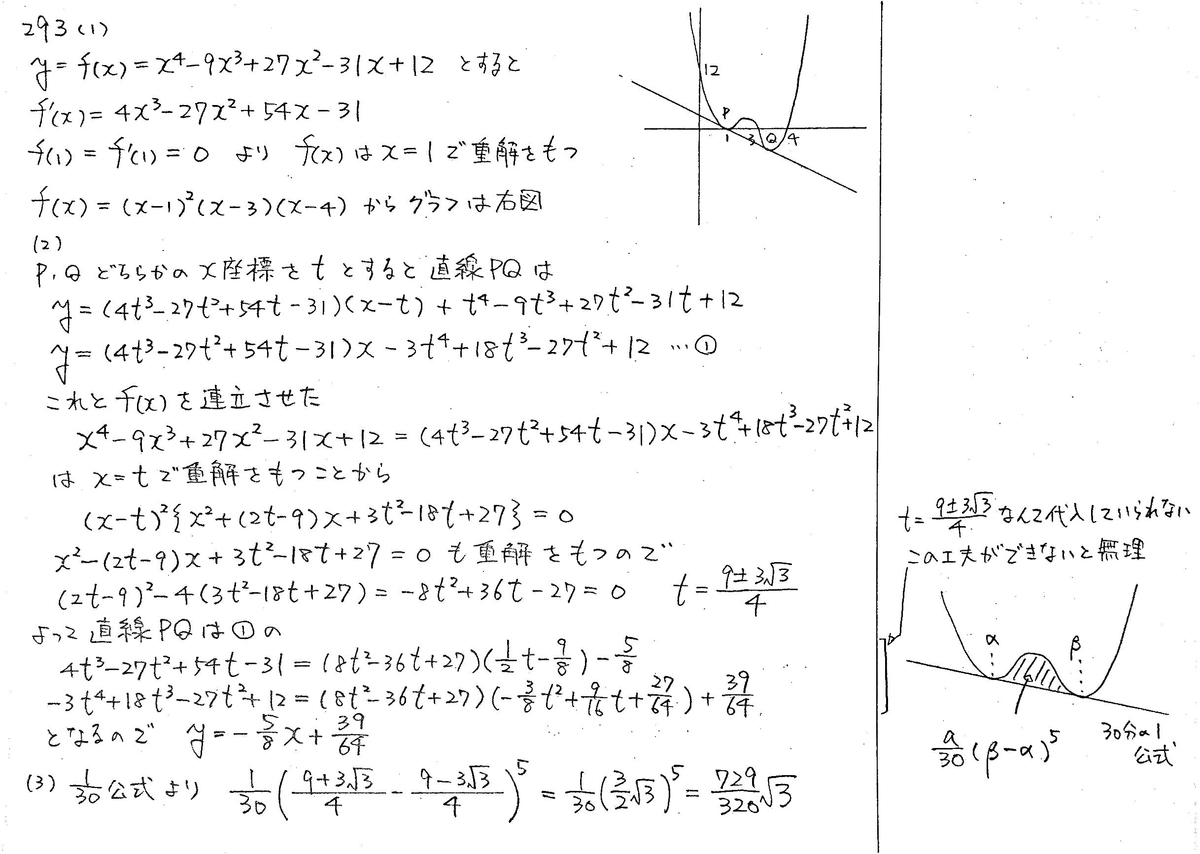 293(1)
y=f(x)=x⁴-9x³+27x²-31x+12 とすると
f'(x)=4x³-27x²+54x-31
f(1)=f'(1)=0 より f(x)はx=1で重解をもつ
f(x)=(x-1)²(x-3)(x-4) からグラフは右図
12
P
1 3 Q 4
(2)
P,Qどちらかのx座標をtとすると直線PQは
y=(4t³-27t²+54t-31)(x-t)+t⁴-9t³+27t²-31t+12
y=(4t³-27t²+54t-31)x-3t⁴+18t³-27t²+12 …①
これとf(x)を連立させた
x⁴-9x³+27x²-31x+12=(4t³-27t²+54t-31)x-3t⁴+18t³-27t²+12
はx=tで重解をもつことから
(x-t)²{x²+(2t-9)x+3t²-18t+27}=0
x²-(2t-9)x+3t²-18t+27=0も重解をもつので
(2t-9)²-4(3t²-18t+27)=-8t²+36t-27=0 t=(9±3√3)/4
よって直線PQは①の
4t³-27t²+54t-31=(8t²-36t+27)(1/2t-9/8)-5/8
-3t⁴+18t³-27t²+12=(8t²-36t+27)(-3/8t²+9/16t+27/64)+39/64
となるので y=-5/8x+39/64
(3) 1/30公式より 1/30((9+3√3)/4-(9-3√3)/4)⁵=1/30(3/2√3)⁵=729/320√3
t=(9±3√3)/4 なんて代入していられない
この工夫ができないと無理
α β
a/30(β-α)⁵
30分の1
公式